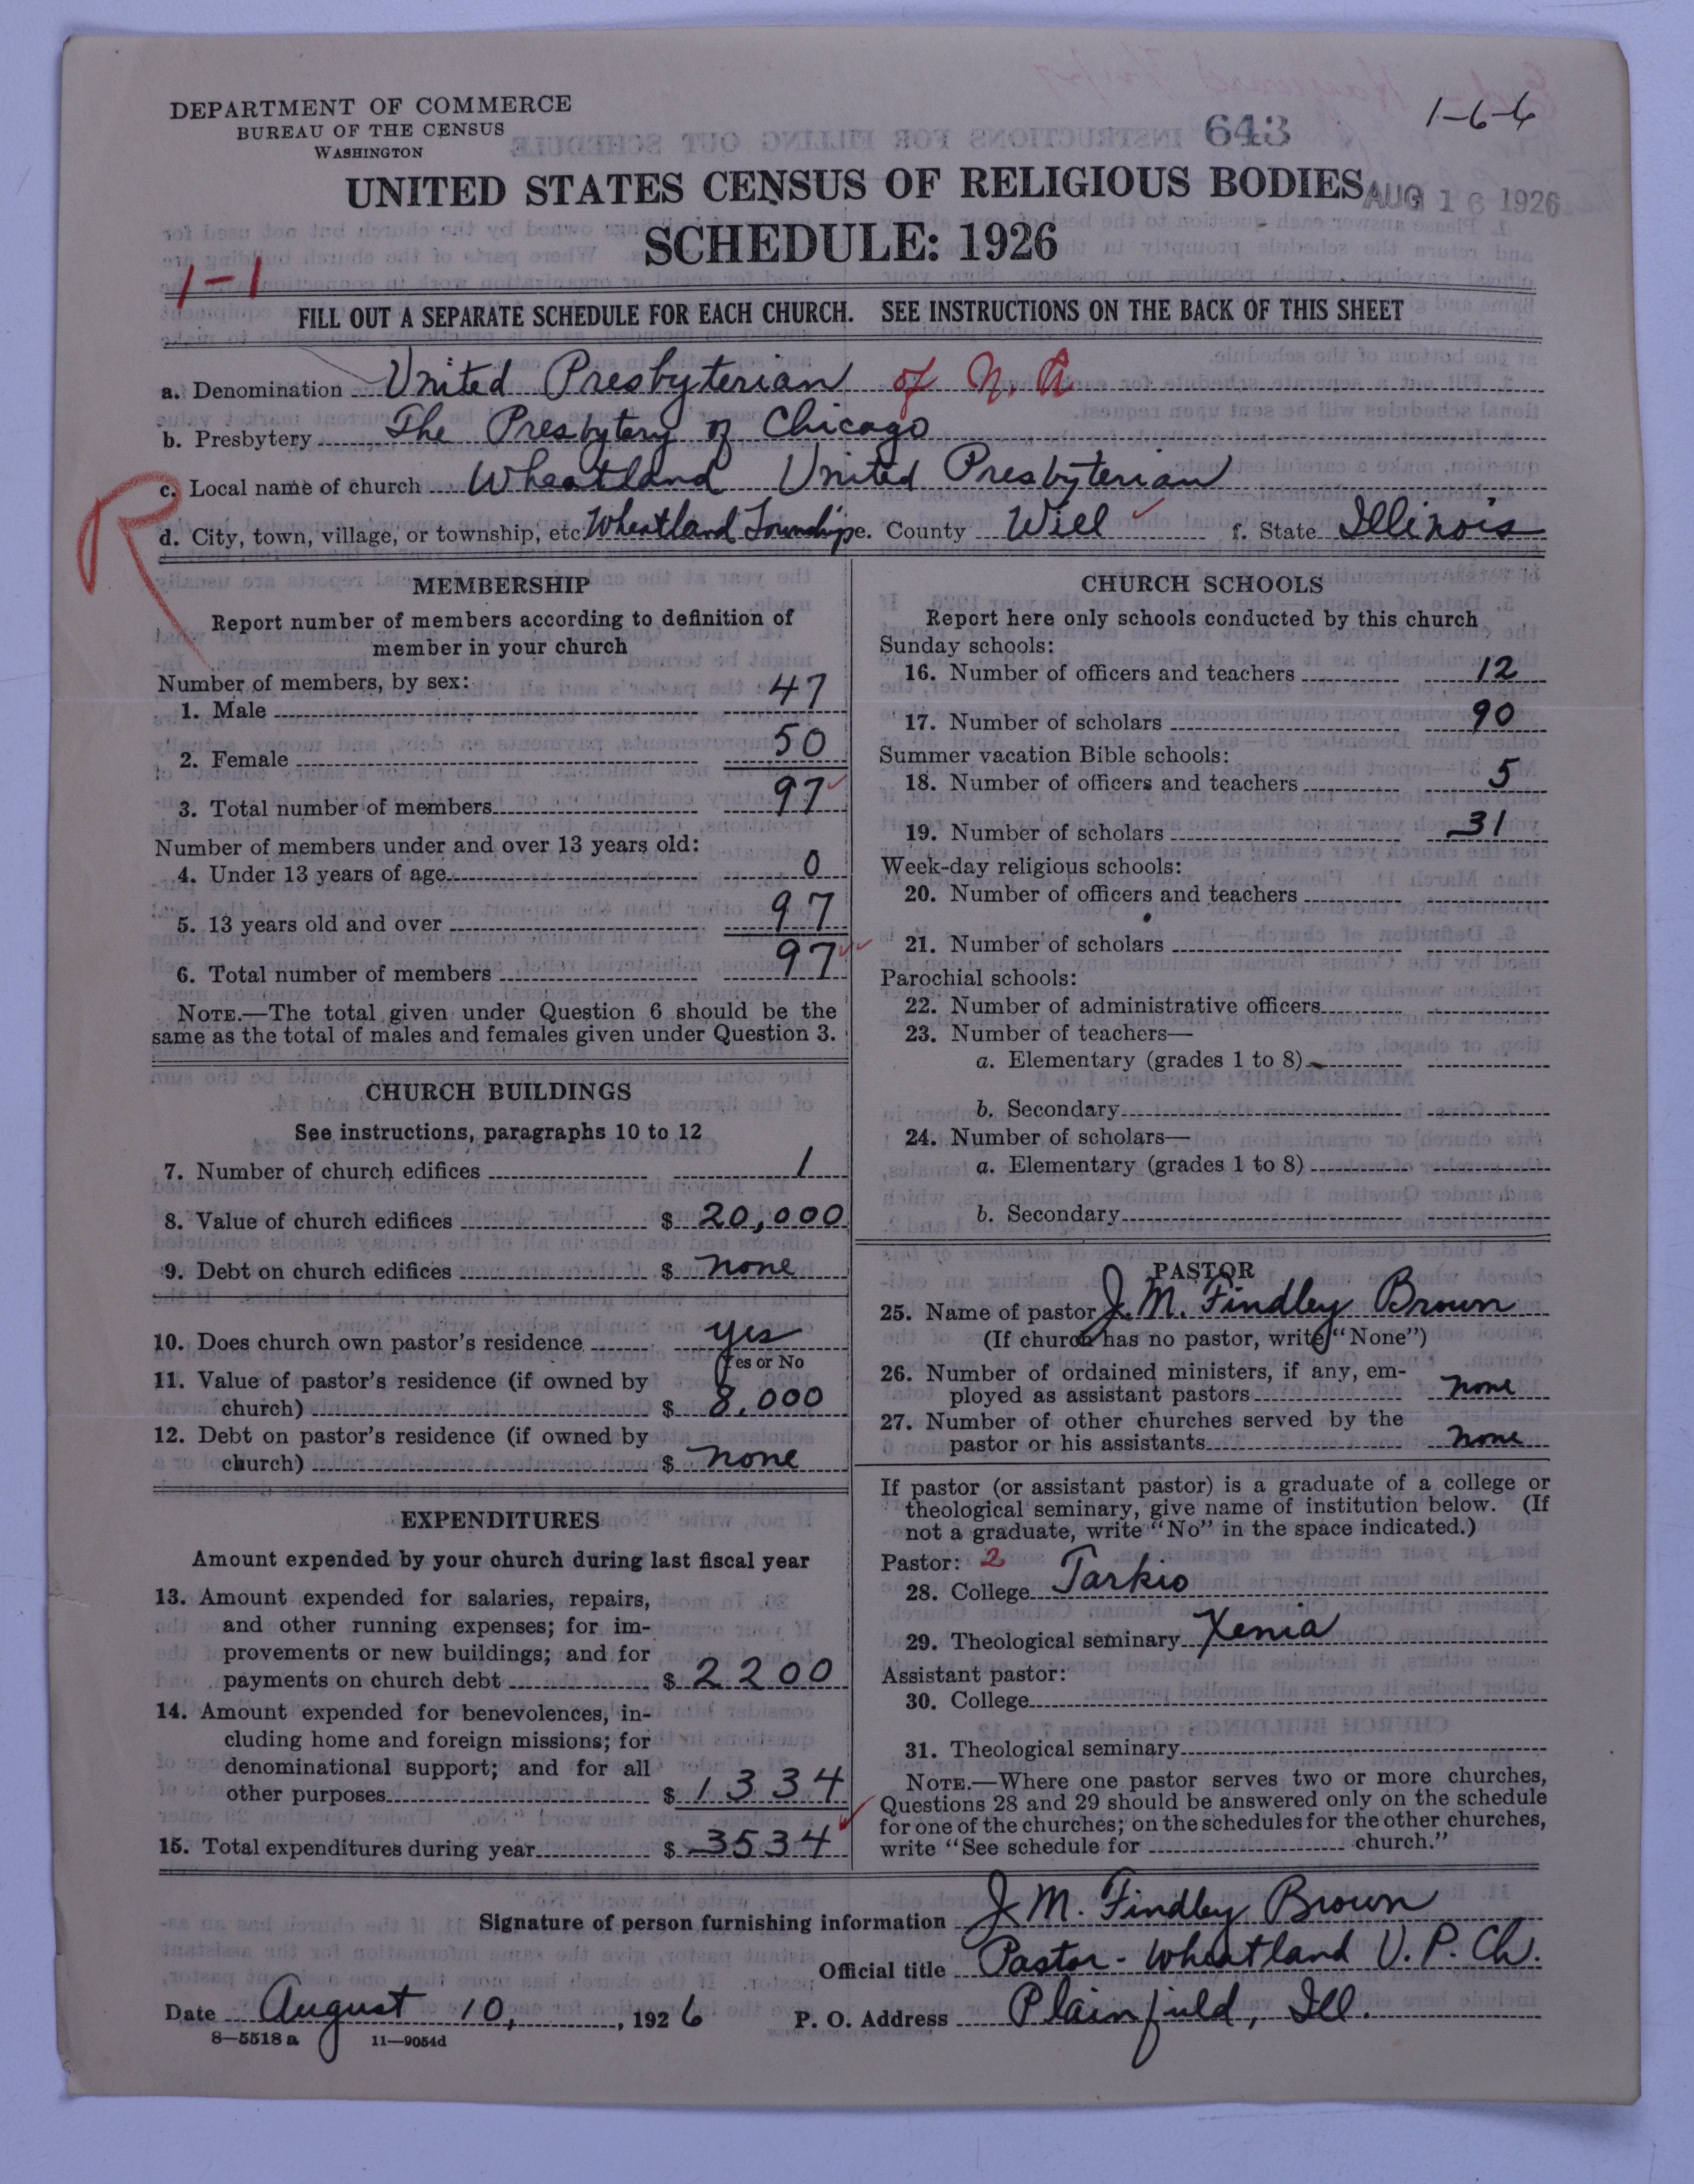 DEPARTMENT OF COMMERCE
BUREAU OF THE CENSUS
WASHINGTON
643
1-6-6
UNITED STATES CENSUS OF RELIGIOUS BODIES
AUG 16 1926
SCHEDULE: 1926
1-1
FILL OUT A SEPARATE SCHEDULE FOR EACH CHURCH. SEE INSTRUCTIONS ON THE BACK OF THIS SHEET
a. Denomination United Presbyterian of N. A
b. Presbytery The Presbytery of Chicago
R
c. Local name of church Wheatland United Presbyterian
d. City, town, village, or township, etc. Wheatland Township e. County Will f. State Illinois
MEMBERSHIP
Report number of members according to definition of
member in your church
Number of members, by sex:
1. Male 47
2. Female 50
3. Total number of members 97
Number of members under and over 13 years old:
4. Under 13 years of age 0
5. 13 years old and over 97
6. Total number of members 97
NOTE.—The total given under Question 6 should be the
same as the total of males and females given under Question 3.
CHURCH BUILDINGS
See instructions, paragraphs 10 to 12
7. Number of church edifices 1
8. Value of church edifices $ 20,000
9. Debt on church edifices $ none
10. Does church own pastor's residence yes
Yes or No
11. Value of pastor's residence (if owned by
church) $ 8,000
12. Debt on pastor's residence (if owned by
church) $ none
EXPENDITURES
Amount expended by your church during last fiscal year
13. Amount expended for salaries, repairs,
and other running expenses; for im-
provements or new buildings; and for
payments on church debt $ 2200
14. Amount expended for benevolences, in-
cluding home and foreign missions; for
denominational support; and for all
other purposes $ 1334
15. Total expenditures during year $ 3534
CHURCH SCHOOLS
Report here only schools conducted by this church
Sunday schools:
16. Number of officers and teachers 12
17. Number of scholars 90
Summer vacation Bible schools:
18. Number of officers and teachers 5
19. Number of scholars 31
Week-day religious schools:
20. Number of officers and teachers
21. Number of scholars
Parochial schools:
22. Number of administrative officers
23. Number of teachers—
a. Elementary (grades 1 to 8)
b. Secondary
24. Number of scholars—
a. Elementary (grades 1 to 8)
b. Secondary
PASTOR
25. Name of pastor J. M. Findley Brown
(If church has no pastor, write "None")
26. Number of ordained ministers, if any, em-
ployed as assistant pastors none
27. Number of other churches served by the
pastor or his assistants none
If pastor (or assistant pastor) is a graduate of a college or
theological seminary, give name of institution below. (If
not a graduate, write "No" in the space indicated.)
Pastor: 2
28. College Tarkio
29. Theological seminary Xenia
Assistant pastor:
30. College
31. Theological seminary
NOTE.—Where one pastor serves two or more churches,
Questions 28 and 29 should be answered only on the schedule
for one of the churches; on the schedules for the other churches,
write "See schedule for church."
Signature of person furnishing information J. M. Findley Brown
Official title Pastor - Wheatland U. P. Ch.
Date August 10, , 1926 P. O. Address Plainfield, Ill.
8—5518 a 11—9054d